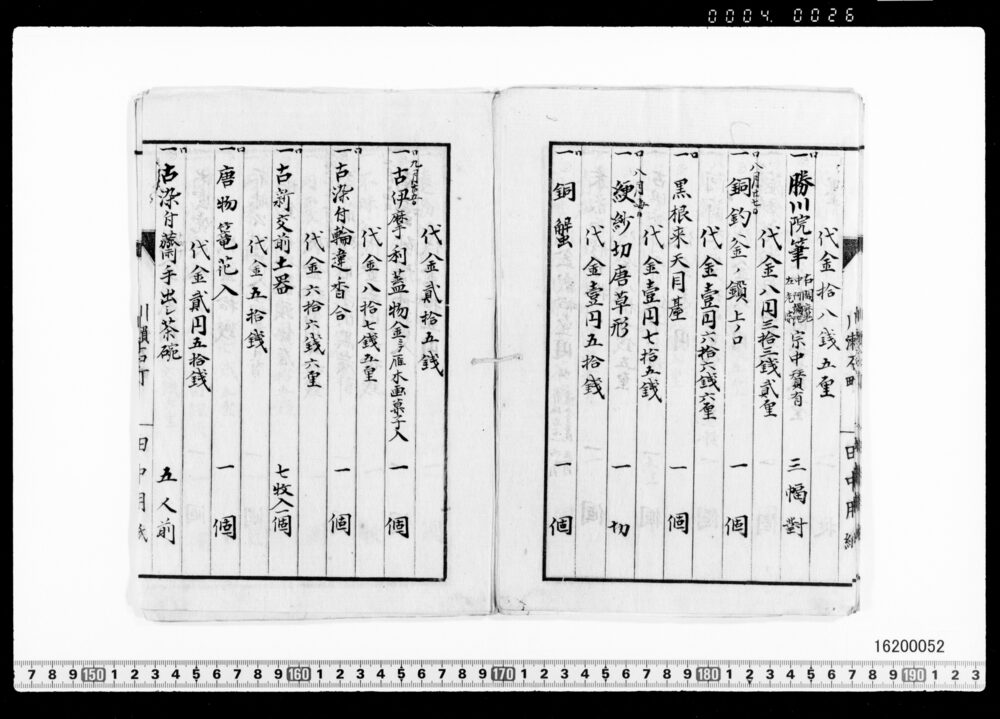 0004. 0026
代金拾八銭五里
一 勝川院筆 宗中賛有 三幅對
代金八円三拾三銭貳里
八月廿七日
一 銅釣釜ノ鎖上ノ口 一個
代金壹円六拾六銭六里
一 黒根来天目臺 一個
代金壹円七拾五銭
一 縷紗切唐草形 一切
代金壹円五拾銭
一 銅蟹 一個
代金貳拾五銭
一 古伊摩利蓋物 雁水画菓子入 一個
代金八拾七銭五里
一 古染付輪違香合 一個
代金六拾六銭六里
一 古新交前土器 七枚入一個
代金五拾銭
一 唐物篭花入 一個
代金貳円五拾銭
一 古染付 手出シ茶碗 五人前
16200052
7 8 9 150 1 2 3 4 5 6 7 8 9 160 1 2 3 4 5 6 7 8 9 170 1 2 3 4 5 6 7 8 9 180 1 2 3 4 5 6 7 8 9 190 1 2 3